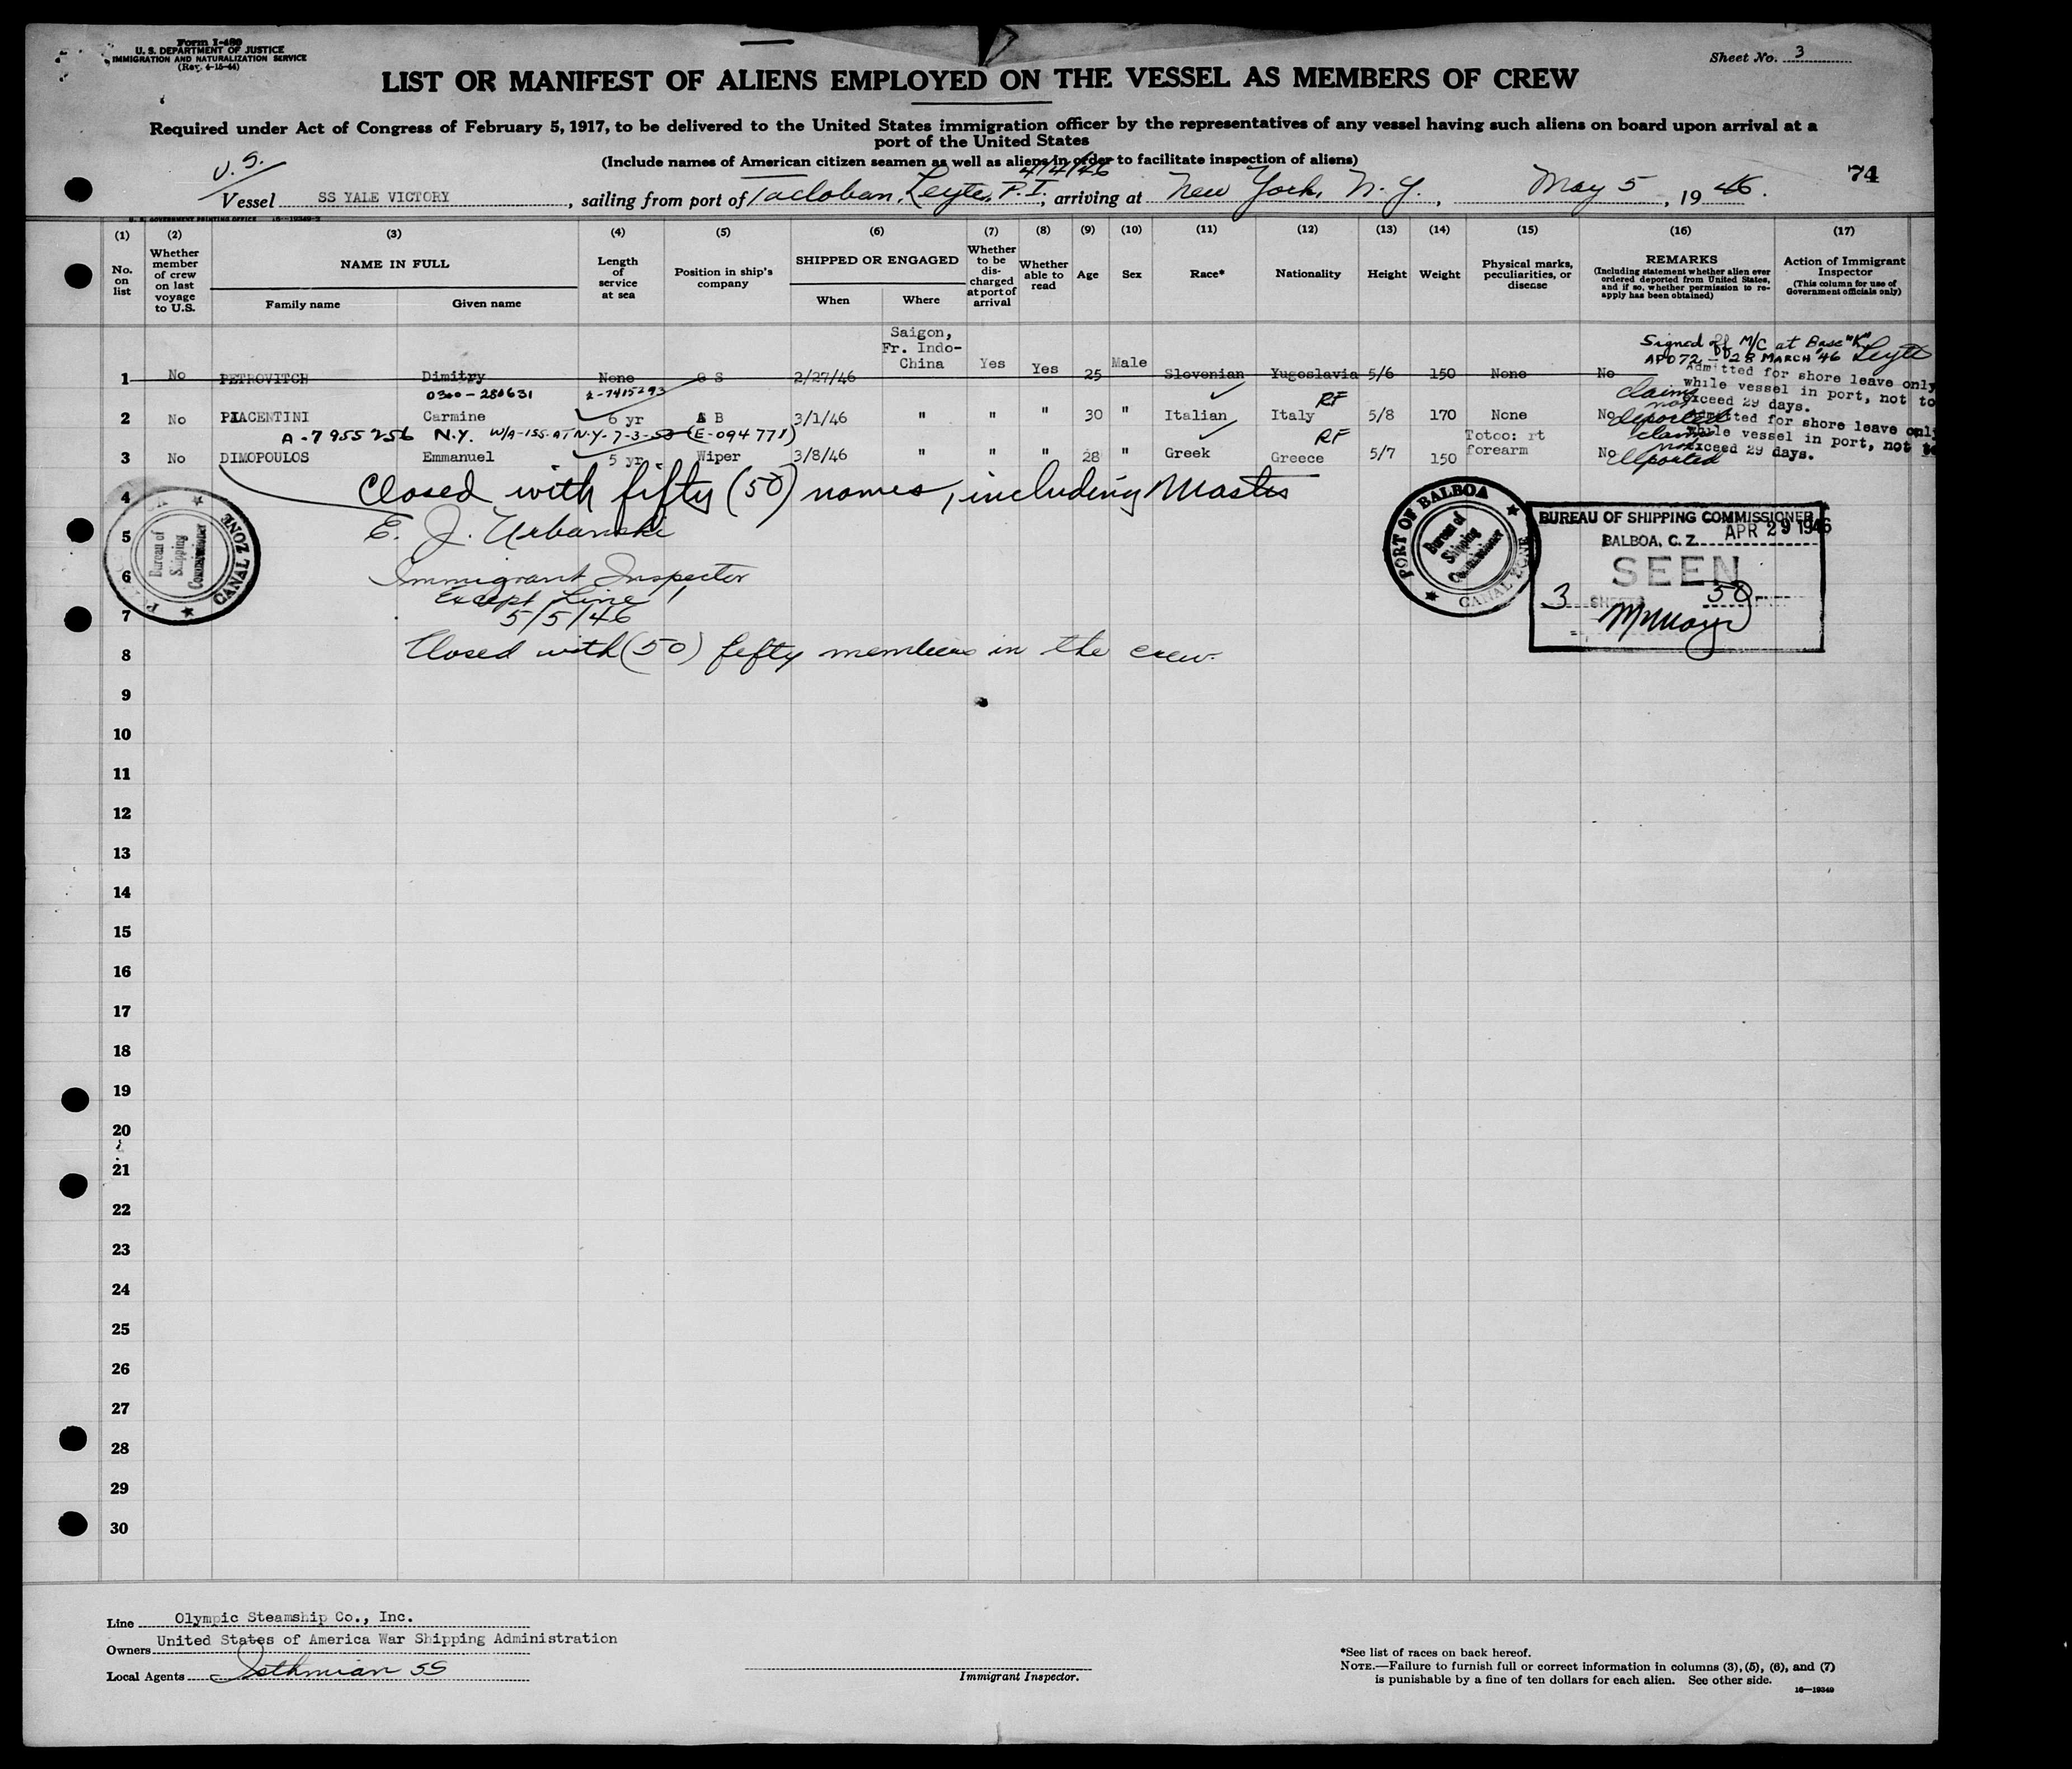 Form I-480
U. S. DEPARTMENT OF JUSTICE
IMMIGRATION AND NATURALIZATION SERVICE
(Rev. 4-15-44)
Sheet No. 3
LIST OR MANIFEST OF ALIENS EMPLOYED ON THE VESSEL AS MEMBERS OF CREW
Required under Act of Congress of February 5, 1917, to be delivered to the United States immigration officer by the representatives of any vessel having such aliens on board upon arrival at a
port of the United States
(Include names of American citizen seamen as well as aliens in order to facilitate inspection of aliens)
U.S. 4/4/46 74
Vessel SS YALE VICTORY, sailing from port of Tacloban, Leyte, P.I., arriving at New York, N.Y., May 5, 1946.
U. S. GOVERNMENT PRINTING OFFICE 16-19349-2
(1) (2) (3) (4) (5) (6) (7) (8) (9) (10) (11) (12) (13) (14) (15) (16) (17)
No. on list
Whether member of crew on last voyage to U.S.
NAME IN FULL
Family name
Given name
Length of service at sea
Position in ship's company
SHIPPED OR ENGAGED
When
Where
Whether to be discharged at port of arrival
Whether able to read
Age
Sex
Race*
Nationality
Height
Weight
Physical marks, peculiarities, or disease
REMARKS
(Including statement whether alien ever ordered deported from United States, and if so, whether permission to reapply has been obtained)
Action of Immigrant Inspector
(This column for use of Government officials only)
Signed off M/C at Base "K"
APO 72 - 28 MARCH '46 Leyte
1 No PETROVITCH Dimitry None O S 2/27/46 Saigon, Fr. Indo-China Yes Yes 25 Male Slovenian Yugoslavia 5/6 150 None No
Admitted for shore leave only
while vessel in port, not to
exceed 29 days.
0300-280631 2-7415293 RF
2 No PIACENTINI Carmine 6 yr A B 3/1/46 " " " 30 " Italian Italy 5/8 170 None No
Claims not deported
Admitted for shore leave only
while vessel in port, not to
exceed 29 days.
A-7955256 N.Y. W/A-155-AT N.Y.-7-3-53 (E-094771) RF
3 No DIMOPOULOS Emmanuel 5 yr. Wiper 3/8/46 " " " 28 " Greek Greece 5/7 150 Totoo: rt forearm No
Claims not deported
4
Closed with fifty (50) names, including Master
5
E. J. Urbanski
6
Immigrant Inspector
Except Line 1
7
5/5/46
8
Closed with (50) fifty members in the crew.
CANAL ZONE
Bureau of Shipping Commissioner
PORT OF BALBOA
Bureau of Shipping Commissioner
CANAL ZONE
BUREAU OF SHIPPING COMMISSIONER
BALBOA, C. Z. APR 29 1946
SEEN
3 SHEETS 50
9
10
11
12
13
14
15
16
17
18
19
20
21
22
23
24
25
26
27
28
29
30
Line Olympic Steamship Co., Inc.
Owners United States of America War Shipping Administration
Local Agents Isthmian SS
Immigrant Inspector.
*See list of races on back hereof.
NOTE.—Failure to furnish full or correct information in columns (3), (5), (6), and (7)
is punishable by a fine of ten dollars for each alien. See other side.
16—19349